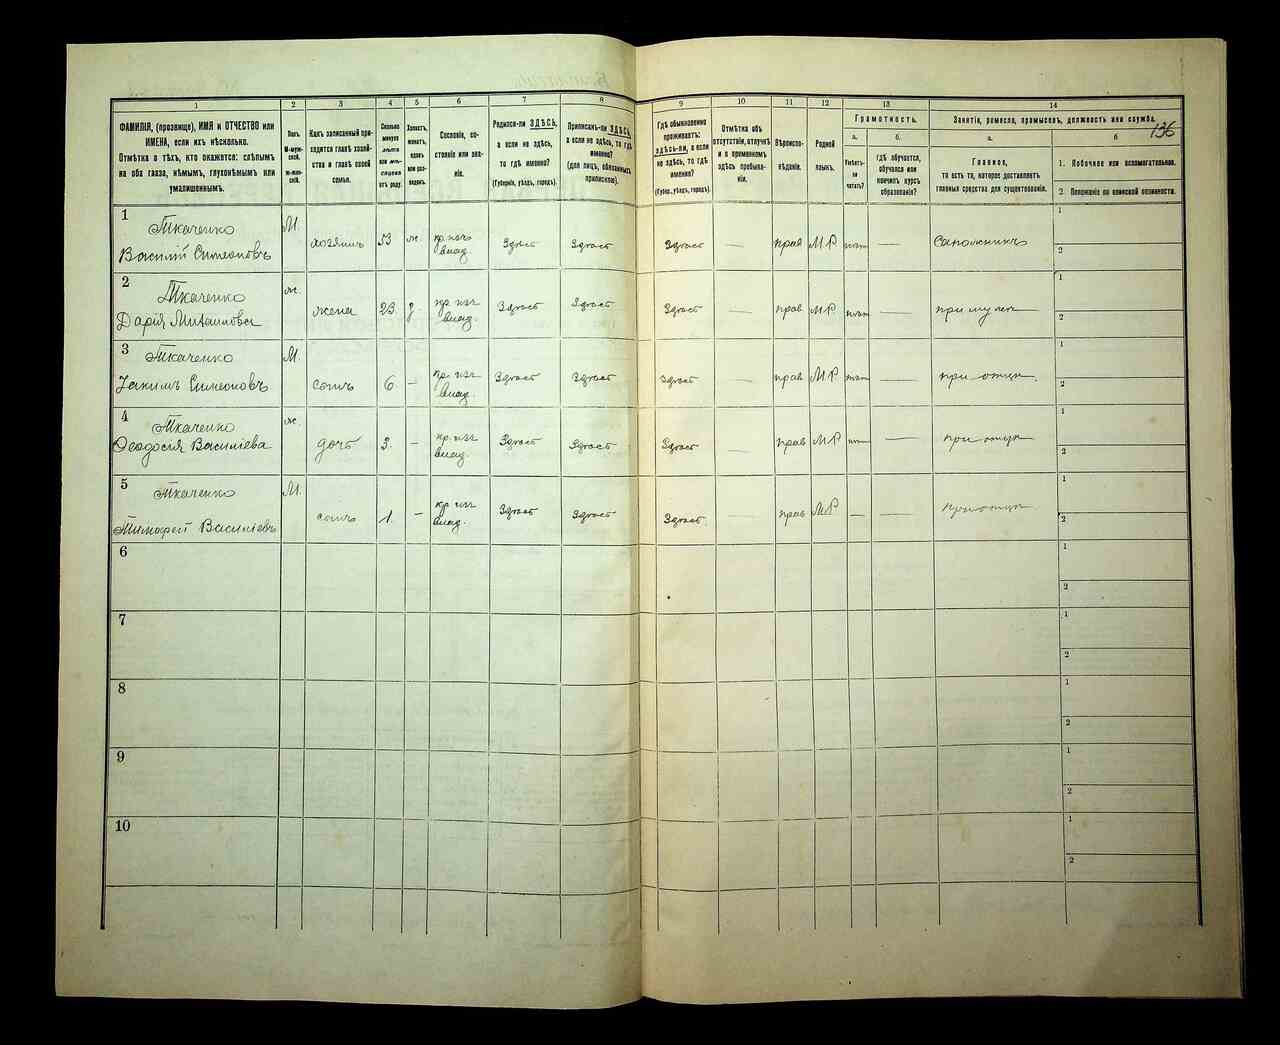 1
2
3
4
5
6
7
8
9
10
11
12
13
14
ФАМИЛІЯ, (прозвище), ИМЯ и ОТЧЕСТВО или
ИМЕНА, если ихъ нѣсколько.
Отмѣтка о тѣхъ, кто окажется: слѣпымъ
на оба глаза, нѣмымъ, глухонѣмымъ или
умалишеннымъ.
Полъ.
М-муж-
ской.
Ж-жен-
скій.
Какъ записанный при-
ходится главѣ хозяй-
ства и главѣ своей
семьи.
Сколько
минуло
лѣтъ
или мѣ-
сяцевъ
отъ роду.
Холостъ,
женатъ,
вдовъ
или раз-
веденъ.
Сословіе, со-
стояніе или зва-
ніе.
Родился-ли ЗДѢСЬ,
а если не здѣсь,
то гдѣ именно?
(Губернія, уѣздъ, городъ).
Приписанъ-ли ЗДѢСЬ,
а если не здѣсь, то гдѣ
именно?
(для лицъ, обязанныхъ
припискою).
Гдѣ обыкновенно
проживаетъ:
здѣсь-ли, а если
не здѣсь, то гдѣ
именно?
(Губер., уѣздъ, городъ).
Отмѣтка объ
отсутствіи, отлучкѣ
и о временномъ
здѣсь пребыва-
ніи.
Вѣроиспо-
вѣданіе.
Родной
языкъ.
Грамотность.
а.
Умѣетъ-
ли
читать?
б.
гдѣ обучается,
обучался или
кончилъ курсъ
образованія?
Занятіе, ремесло, промыселъ, должность или служба.
136
а.
Главное,
то есть то, которое доставляетъ
главныя средства для существованія.
б
1. Побочное или вспомогательное.
2 Положеніе по воинской повинности.
1
Ткаченко
Василій Симеоновъ
М.
хозяинъ
53
ж.
кр. изъ
влад.
Здѣсь
Здѣсь
Здѣсь
—
прав
МР
нѣт
—
Сапожникъ
1
2
2
Ткаченко
Дарія Михаиловa
ж.
жена
23
кр. изъ
влад.
Здѣсь
Здѣсь
Здѣсь
—
прав
МР
нѣт
—
при мужѣ
1
2
3
Ткаченко
Іакимъ Симеоновъ
М.
сынъ
6
—
кр. изъ
влад.
Здѣсь
Здѣсь
Здѣсь
—
прав
МР
нѣт
—
при отцѣ.
1
2
4
Ткаченко
Ѳеодосія Василіева
ж.
дочь
3.
—
кр. изъ
влад.
Здѣсь
Здѣсь
Здѣсь
—
прав
МР
нѣт
—
при отцѣ
1
2
5
Ткаченко
Тимофей Василіевъ
М.
сынъ
1.
—
кр. изъ
влад.
Здѣсь
Здѣсь
Здѣсь.
—
прав
МР
—
—
при отцѣ
1
2
6
1
2
7
1
2
8
1
2
9
1
2
10
1
2